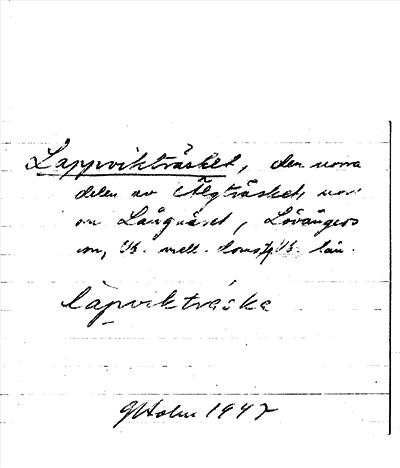 Lappvikträsket, den norra
delen av Älgträsket, norr
om Långnäset, Lövångers
sn, Vb. mell. domsg. Vb. län.
lapvikträska
GHolm 1947